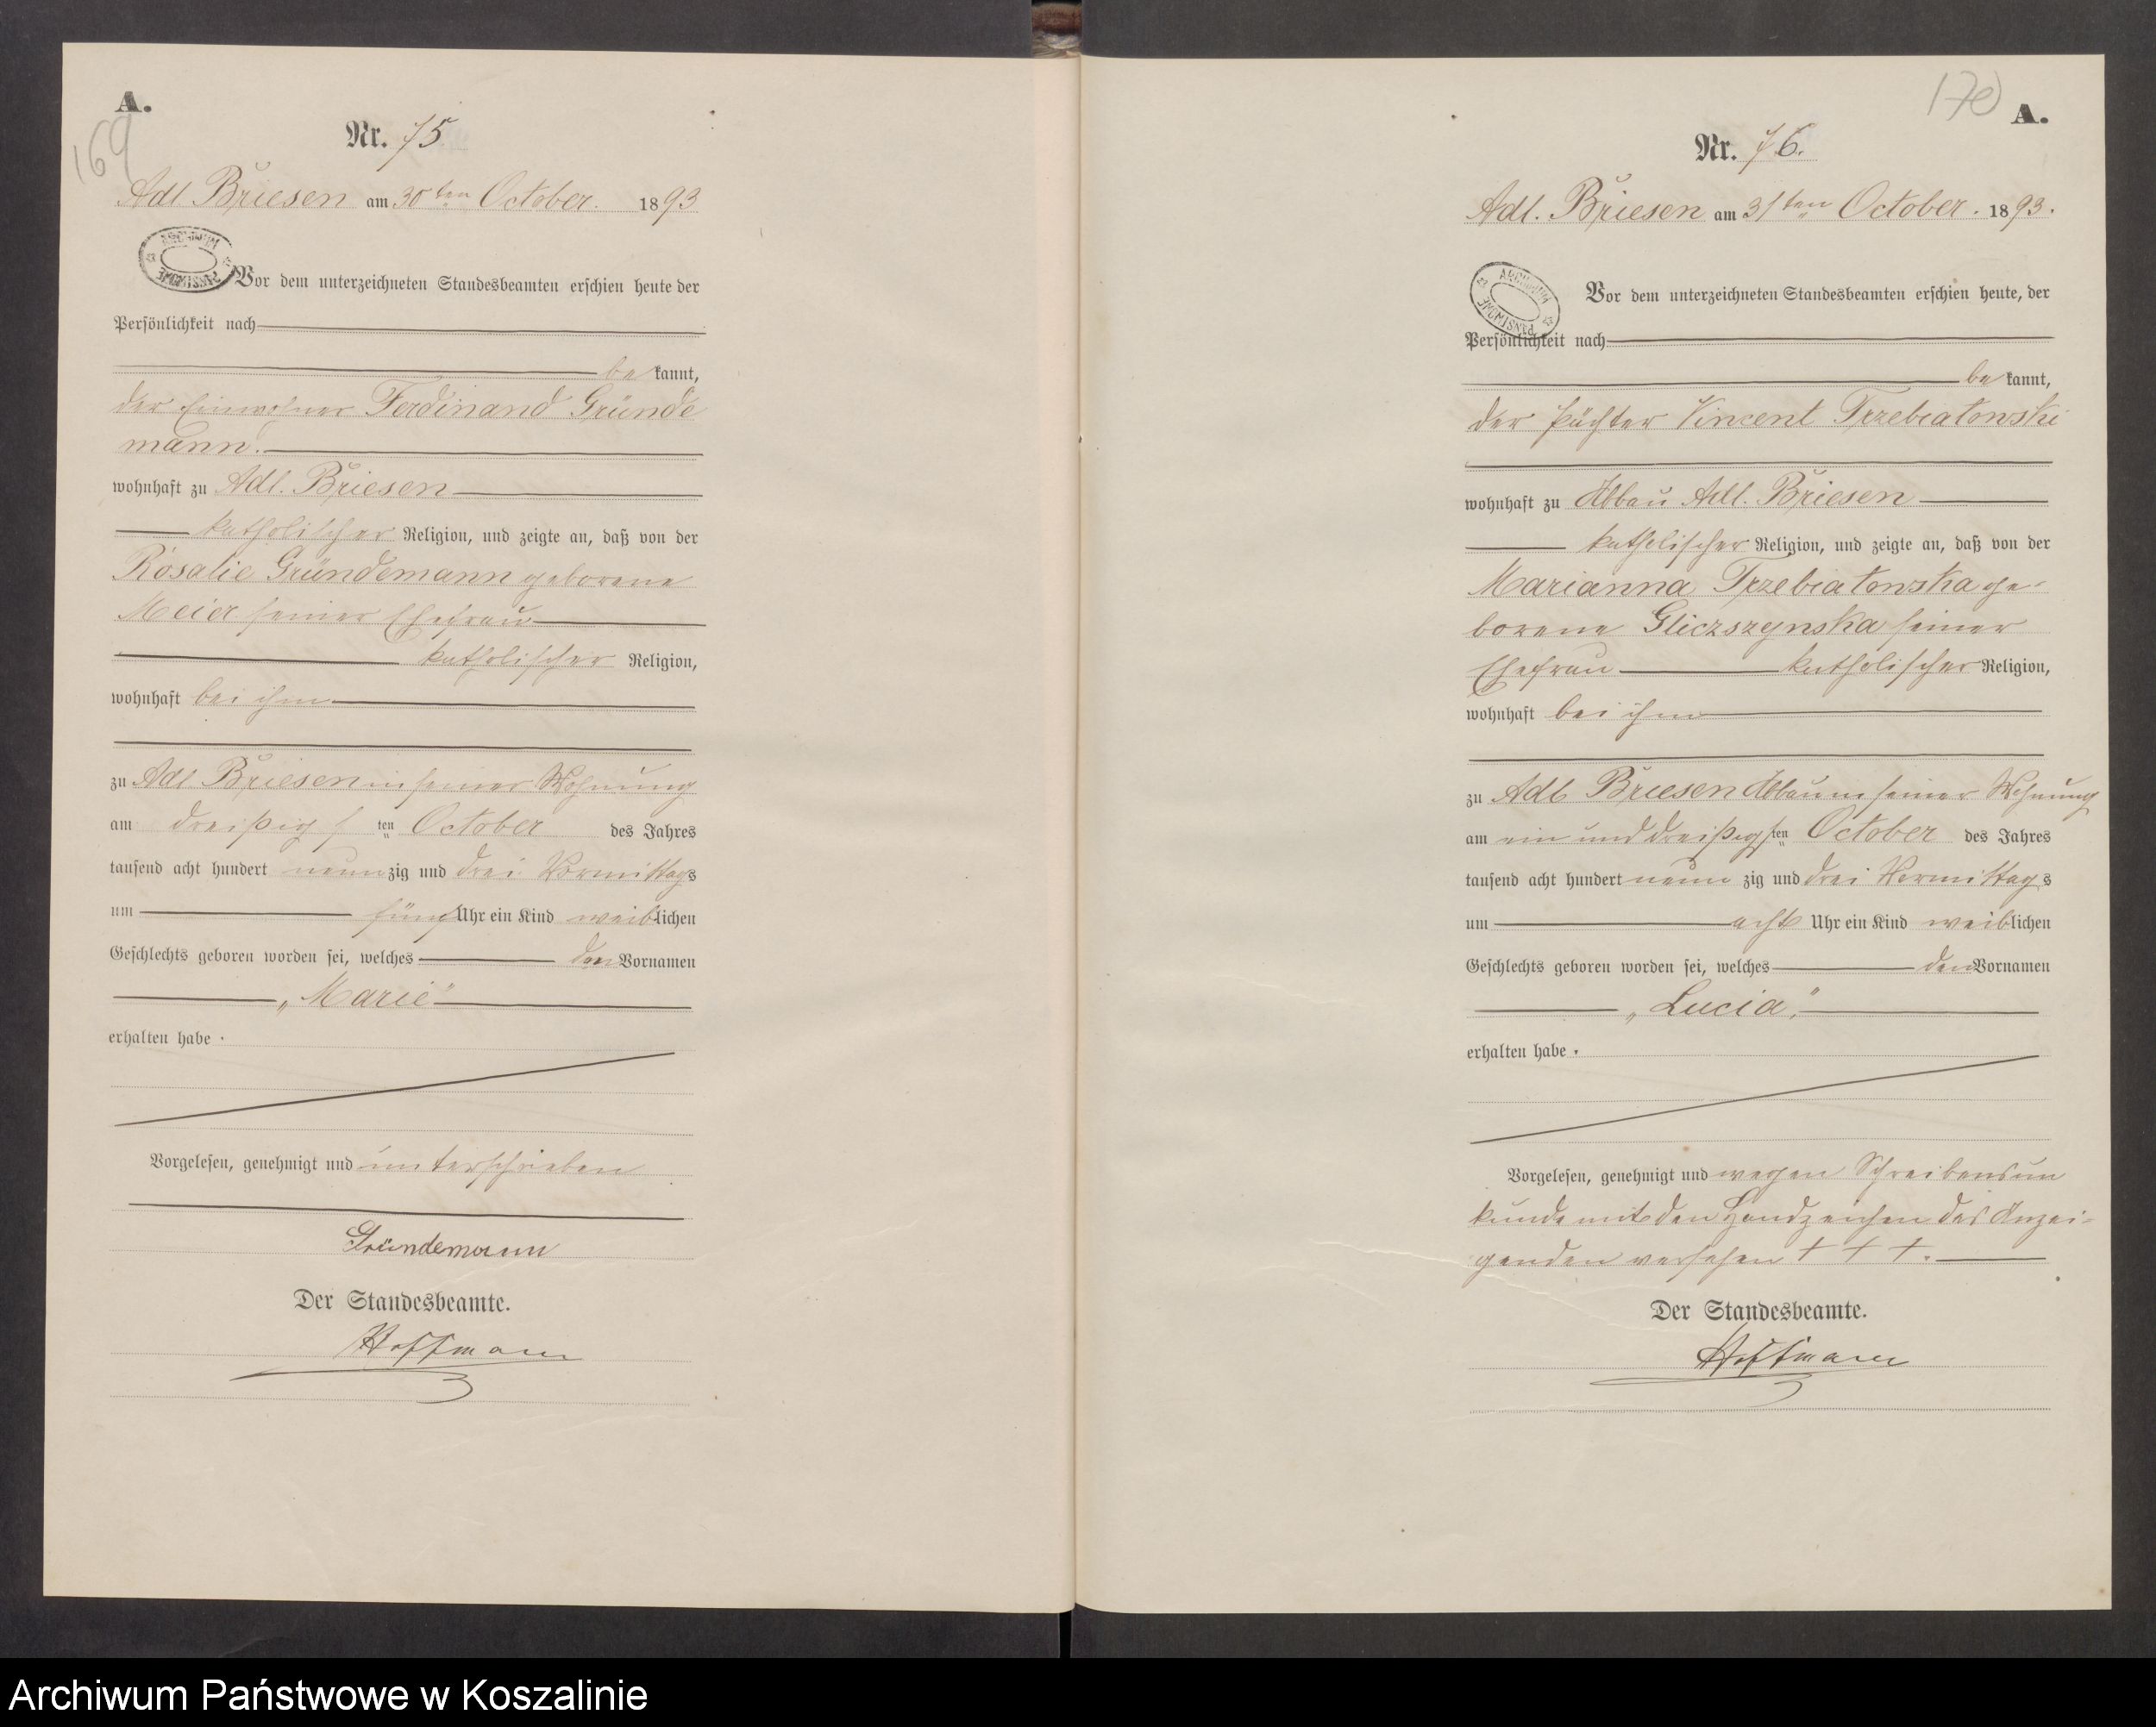 A.
169
Nr. 75
Adl. Briesen am 30ten October. 1893
ARCHIWUM PAŃSTWOWE
Vor dem unterzeichneten Standesbeamten erschien heute der
Persönlichkeit nach
be kannt,
der Einwohner Ferdinand Gründe
mann.
wohnhaft zu Adl. Briesen
katholischer Religion, und zeigte an, daß von der
Rosalie Gründemann geborene
Meier seiner Ehefrau
katholischer Religion,
wohnhaft bei ihm
zu Adl Briesen in seiner Wohnung
am dreißigs ten October des Jahres
tausend acht hundert neun zig und drei Vormittags
um fünf Uhr ein Kind weiblichen
Geschlechts geboren worden sei, welches den Vornamen
„Marie"
erhalten habe .
Vorgelesen, genehmigt und unterschrieben
Gründemann
Der Standesbeamte.
Hoffmann
170
A.
Nr. 76.
Adl. Briesen am 31ten October. 1893.
ARCHIWUM PAŃSTWOWE
Vor dem unterzeichneten Standesbeamten erschien heute, der
Persönlichkeit nach
be kannt,
der Pächter Vincent Trzebiatowski
wohnhaft zu Abbau Adl. Briesen
katholischer Religion, und zeigte an, daß von der
Marianna Trzebiatowska ge-
borene Gliczszynska seiner
Ehefrau katholischer Religion,
wohnhaft bei ihm
zu Adl. Briesen Abbau in seiner Wohnung
am ein und dreißigsten October des Jahres
tausend acht hundert neun zig und drei Vormittags
um acht Uhr ein Kind weiblichen
Geschlechts geboren worden sei, welches den Vornamen
„Lucia",
erhalten habe .
Vorgelesen, genehmigt und wegen Schreibensun
kunde mit den Handzeichen des Anzei-
genden versehen † † †.
Der Standesbeamte.
Hoffmann
Archiwum Państwowe w Koszalinie